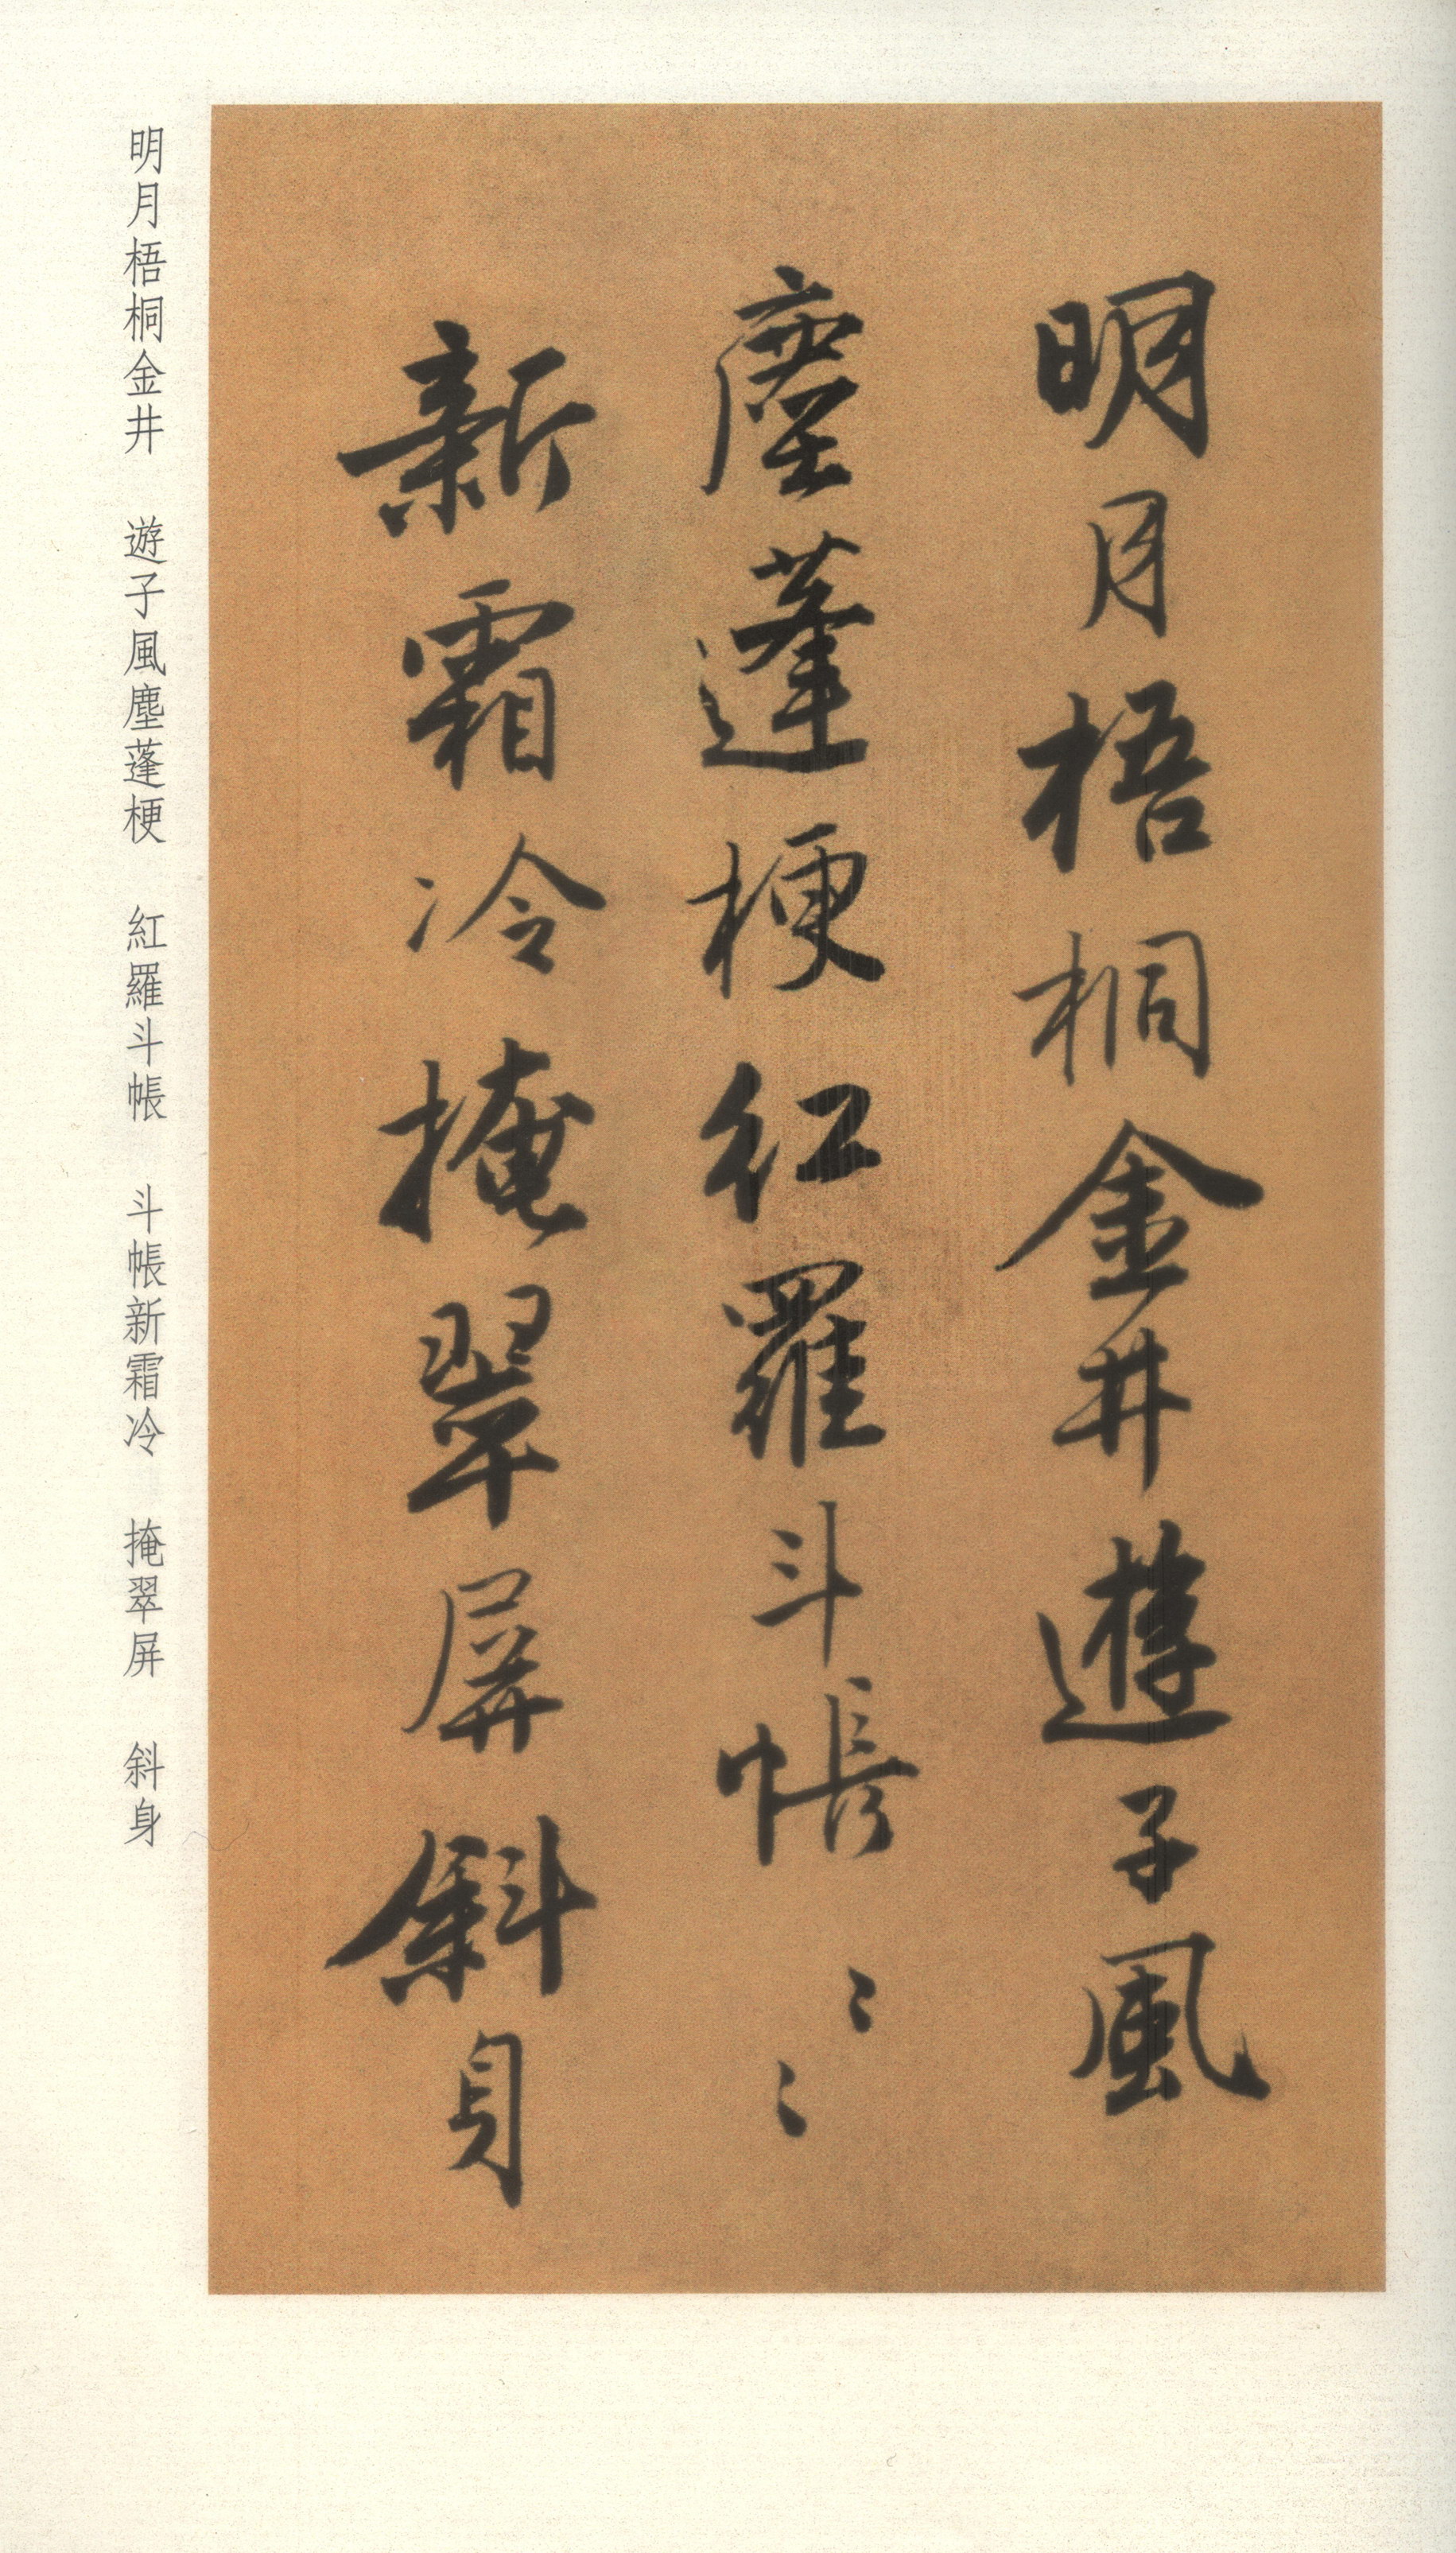 明月梧桐金井遊子風
塵蓬梗紅羅斗帳〻〻
新霜冷掩翠屏斜身
明月梧桐金井　遊子風塵蓬梗　紅羅斗帳　斗帳新霜冷　掩翠屏　斜身